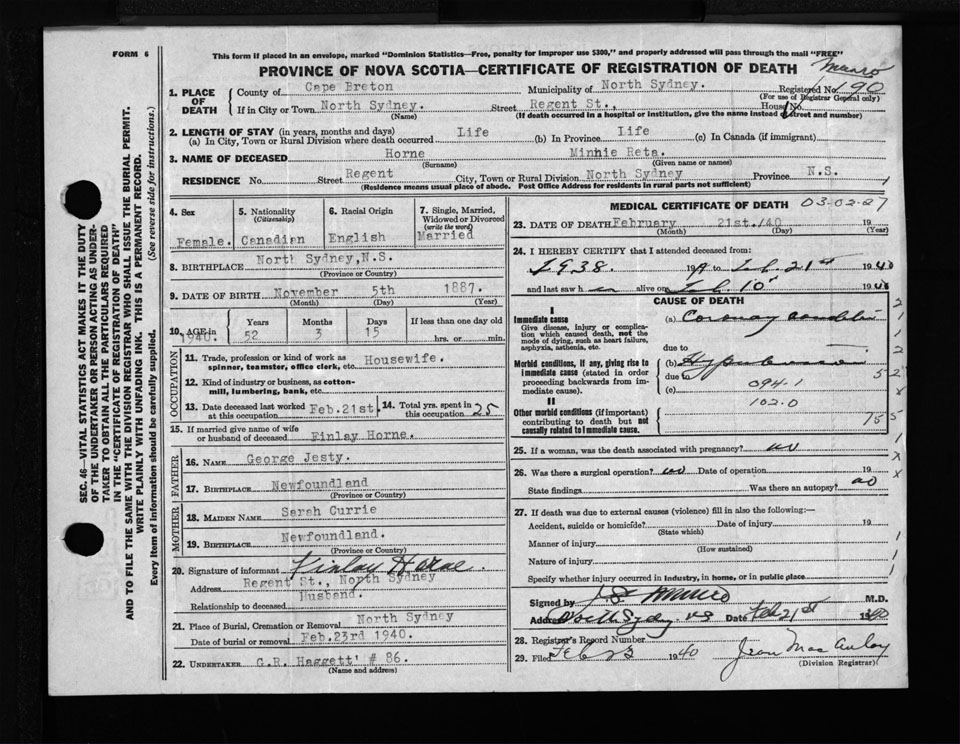 FORM 6
This form if placed in an envelope, marked "Dominion Statistics—Free, penalty for improper use $300," and properly addressed will pass through the mail "FREE"
PROVINCE OF NOVA SCOTIA—CERTIFICATE OF REGISTRATION OF DEATH
Munro
1. PLACE OF DEATH
County of Cape Breton Municipality of North Sydney. Registered No. 190
(For use of Registrar General only)
If in City or Town North Sydney. Street Regent St., House No.
(Name) (If death occurred in a hospital or institution, give the name instead of street and number)
2. LENGTH OF STAY (in years, months and days)
(a) In City, Town or Rural Division where death occurred Life (b) In Province Life (c) In Canada (if immigrant)
3. NAME OF DECEASED Horne Minnie Reta.
(Surname) (Given name or names)
RESIDENCE No. Street Regent City, Town or Rural Division North Sydney Province N.S.
(Residence means usual place of abode. Post Office Address for residents in rural parts not sufficient)
4. Sex
Female.
5. Nationality
(Citizenship)
Canadian
6. Racial Origin
English
7. Single, Married, Widowed or Divorced
(write the word)
Married
8. BIRTHPLACE North Sydney, N.S.
(Province or Country)
9. DATE OF BIRTH November 5th 1887.
(Month) (Day) (Year)
10. AGE in 1940.
Years 52
Months 3
Days 15
If less than one day old
hrs. or min.
OCCUPATION
11. Trade, profession or kind of work as spinner, teamster, office clerk, etc. Housewife.
12. Kind of industry or business, as cotton-mill, lumbering, bank, etc.
13. Date deceased last worked at this occupation Feb.21st
14. Total yrs. spent in this occupation 25
15. If married give name of wife or husband of deceased Finlay Horne.
FATHER
16. NAME George Jesty.
17. BIRTHPLACE Newfoundland
(Province or Country)
MOTHER
18. MAIDEN NAME Sarah Currie
19. BIRTHPLACE Newfoundland.
(Province or Country)
20. Signature of informant Finlay Horne.
Address Regent St., North Sydney
Relationship to deceased Husband.
21. Place of Burial, Cremation or Removal North Sydney
Date of burial or removal Feb.23rd 1940.
22. UNDERTAKER C.R. Haggett' # 86.
(Name and address)
MEDICAL CERTIFICATE OF DEATH 03-02-27
23. DATE OF DEATH February 21st./40 19
(Month) (Day) (Year)
24. I HEREBY CERTIFY that I attended deceased from:
1938. 19 to Feb. 21st 1940
and last saw h er alive on Feb. 10 1940
CAUSE OF DEATH
I
Immediate cause
Give disease, injury or complication which caused death, not the mode of dying, such as heart failure, asphyxia, asthenia, etc.
(a) Coronary
due to
Morbid conditions, if any, giving rise to immediate cause (stated in order proceeding backwards from immediate cause).
(b) Hypertension
due to
(c) 094.1
II
102.0
Other morbid conditions (if important) contributing to death but not causally related to immediate cause.
25. If a woman, was the death associated with pregnancy? no
26. Was there a surgical operation? no Date of operation 19
State findings Was there an autopsy? no
27. If death was due to external causes (violence) fill in also the following:—
Accident, suicide or homicide? Date of injury 19
(State which)
Manner of injury
(How sustained)
Nature of injury
Specify whether injury occurred in industry, in home, or in public place
Signed by Munro M.D.
Address North Sydney NS Date Feb 21st 1940
28. Registrar's Record Number
29. Filed Feb 23 1940 Jean MacAulay
(Division Registrar)
SEC. 46—VITAL STATISTICS ACT MAKES IT THE DUTY
OF THE UNDERTAKER OR PERSON ACTING AS UNDER-
TAKER TO OBTAIN ALL THE PARTICULARS REQUIRED
IN THE "CERTIFICATE OF REGISTRATION OF DEATH"
AND TO FILE THE SAME WITH THE DIVISION REGISTRAR WHO SHALL ISSUE THE BURIAL PERMIT.
WRITE PLAINLY WITH UNFADING INK. THIS IS A PERMANENT RECORD.
Every item of information should be carefully supplied. (See reverse side for instructions.)